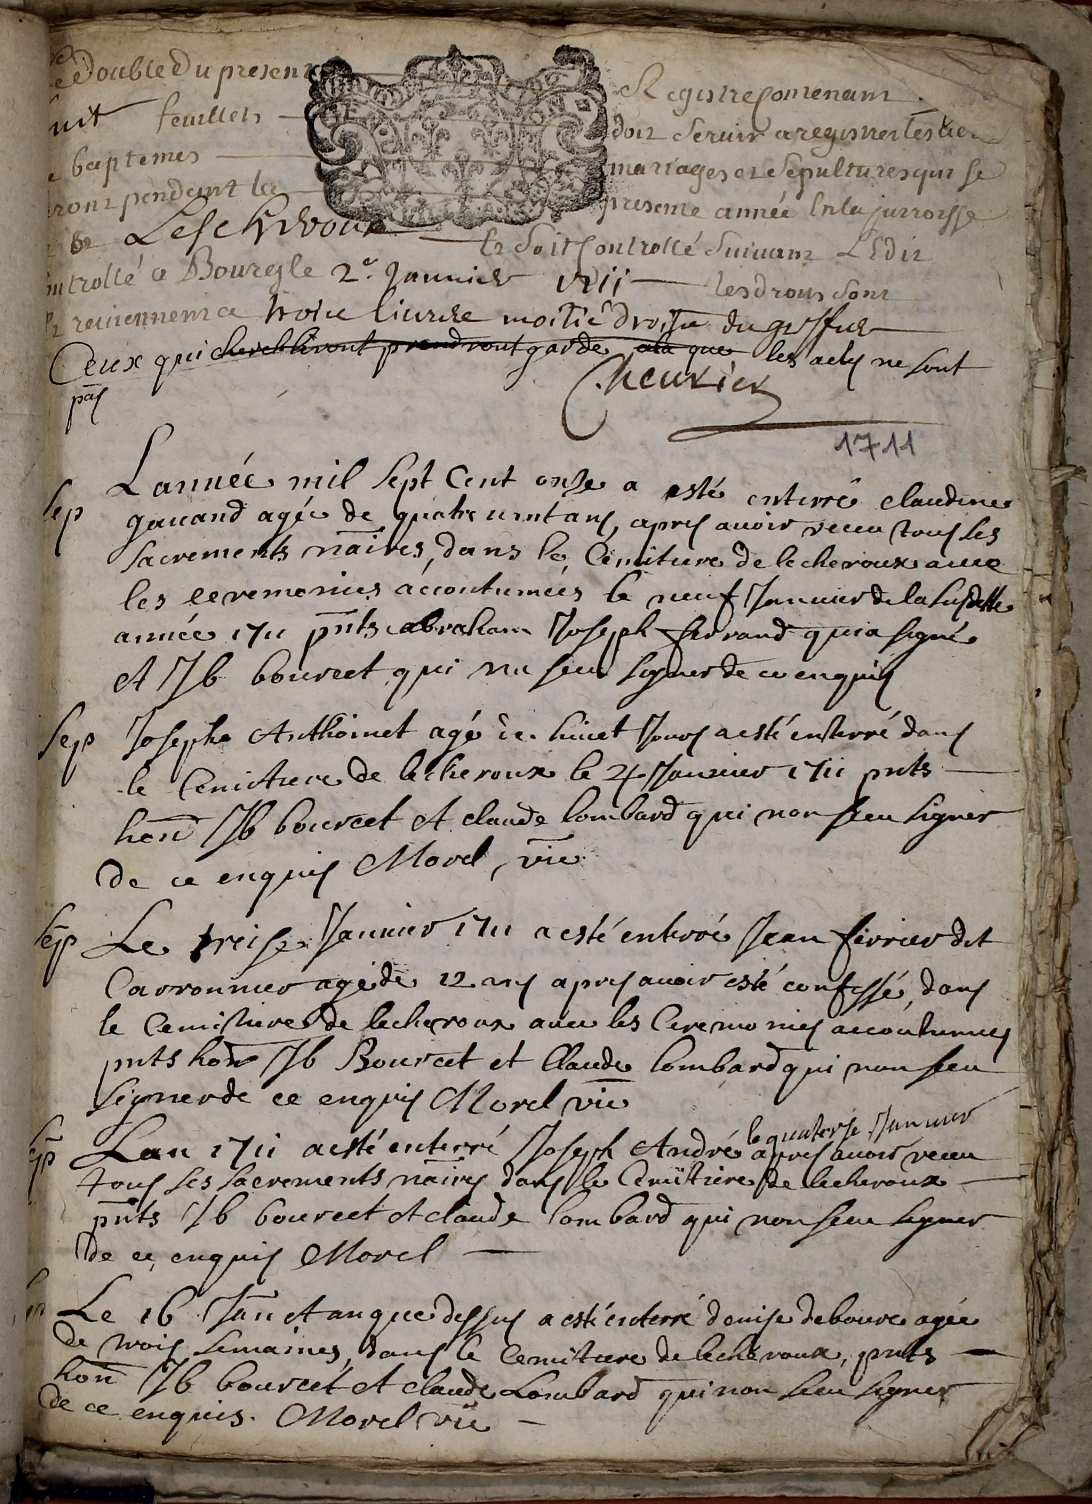 Le Double du present Registre contenant
huit feuillets doit servir a registrer les
baptemes mariages et sepultures qui se
feront pendant la presente année en la parroisse
de Lescheroux Et soit controllé suivant L'Edit
controllé a Bourg le 2e Janvier 1711 les droits sont
et reviennent a trois livres moitié droits du greffier
Ceux qui chercheront prendront garde que les actes ne sont
pas
Chevrier
1711
Sep Lannée mil sept cent onze a esté enterré claudine
gauand agée de quatre vint ans, apres auoir receu tous ses
sacrements naires, dans le Cemitiere de lecheroux auec
les ceremonies accoutumées le neuf Januier de la susditte
année 1711 pnts abraham Joseph ferrand qui a signé
et Jb bourcet qui na seu signer de ce enquis
Sep Josephe Anthoinet agé de huict Jours a esté enterré dans
le Cemitiere de lecheroux le 24 Januier 1711 pnts
hon Jb bourcet et claude lombard qui non seu signer
de ce enquis Morel, vic
Sep Le treise Januier 1711 a esté enterré Jean firrier dit
Carronnier agé de 12 ans apres auoir esté confessé, dans
le Cemitiere de lecheroux auec les Ceremonies accoutumees
pnts hon Jb Bourcet et Claude lombard qui non seu
signer de ce enquis Morel vic
le quatorse Januier
Sep Lan 1711 a esté enterré Joseph André apres auoir receu
tous ses sacrements naires dans le Cemitiere de lecheroux
pnts Jb bourcet et claude lombard qui non seu signer
de ce enquis Morel
Le 16 Jan et an que dessus a esté enterré denise debourc agée
de trois semaines, dans le Cemitiere de lecheroux, pnts
hon Jb bourcet et claude Lombard qui non seu signer
de ce enquis. Morel vic